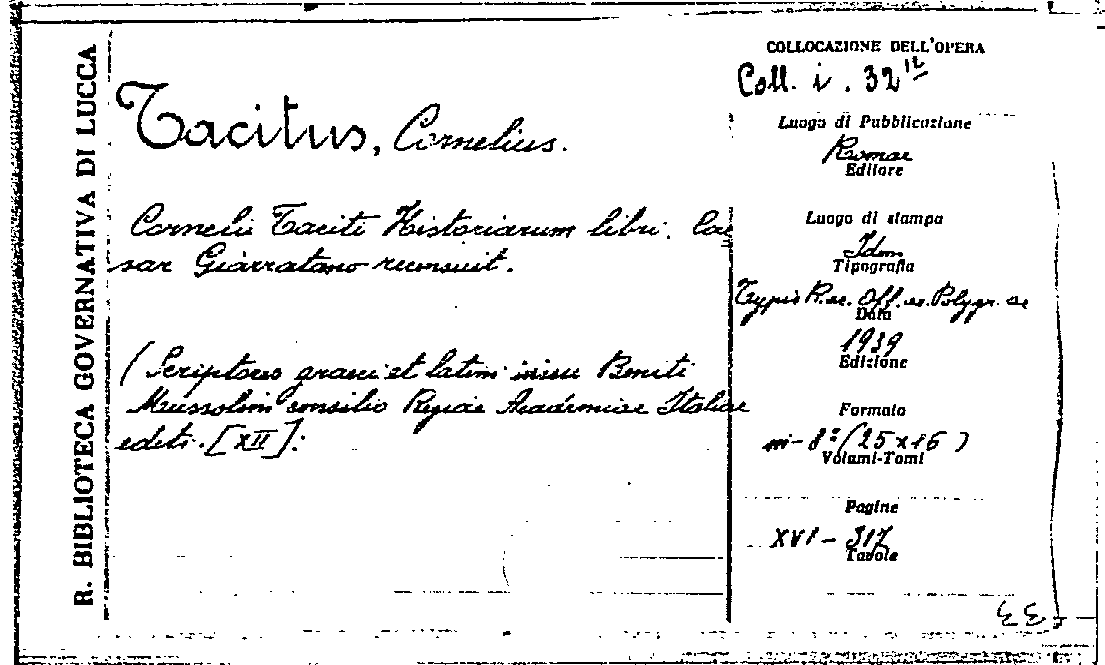 R. BIBLIOTECA GOVERNATIVA DI LUCCA
Tacitus, Cornelius.
Cornelii Taciti Historiarum libri. Cae
sar Giarratano recensuit.
(Scriptores graeci et latini iussu Beniti
Mussolini consilio Regiae Academiae Italiae
editi. [XII]:
COLLOCAZIONE DELL'OPERA
Coll. i. 32 12
Luogo di Pubblicazione
Romae
Editore
Luogo di stampa
Idem
Tipografia
Typis R.ae. Off.ae. Polygr. ae
Data
1939
Edizione
Formato
in-8° (25x16)
Volumi-Tomi
Pagine
XVI - 317
Tavole